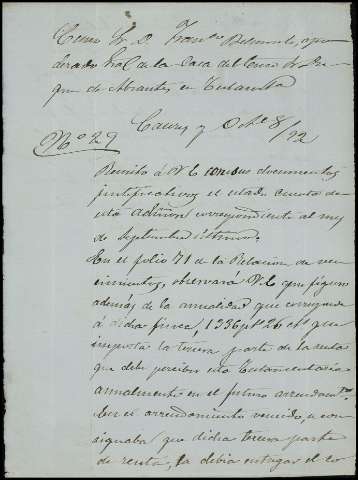 Excmo Sr. D. Franco Belmonte, apo-
derado gral de la Casa del Excmo Sr. Du-
que de Abrantes, en Testamta
Nº 29
y Obre 8/92
Remito á V.E. con sus documentos
justificativos el estado cuenta de
esta admon correspondiente al mes
de Septiembre último.
En el folio 71 de la Relacion de ven-
cimientos, observará V.E. que figura
además de la anualidad que corresponde
á dicha finca, 1336 pts 26 cts que
importa la tercera parte de la renta
que debe percibir esa Testamentaria
anualmente en el futuro arrendamto.
En el arrendamiento vencido, se con-
signaba que dicha tercera parte
de renta, la debia entregar el co-